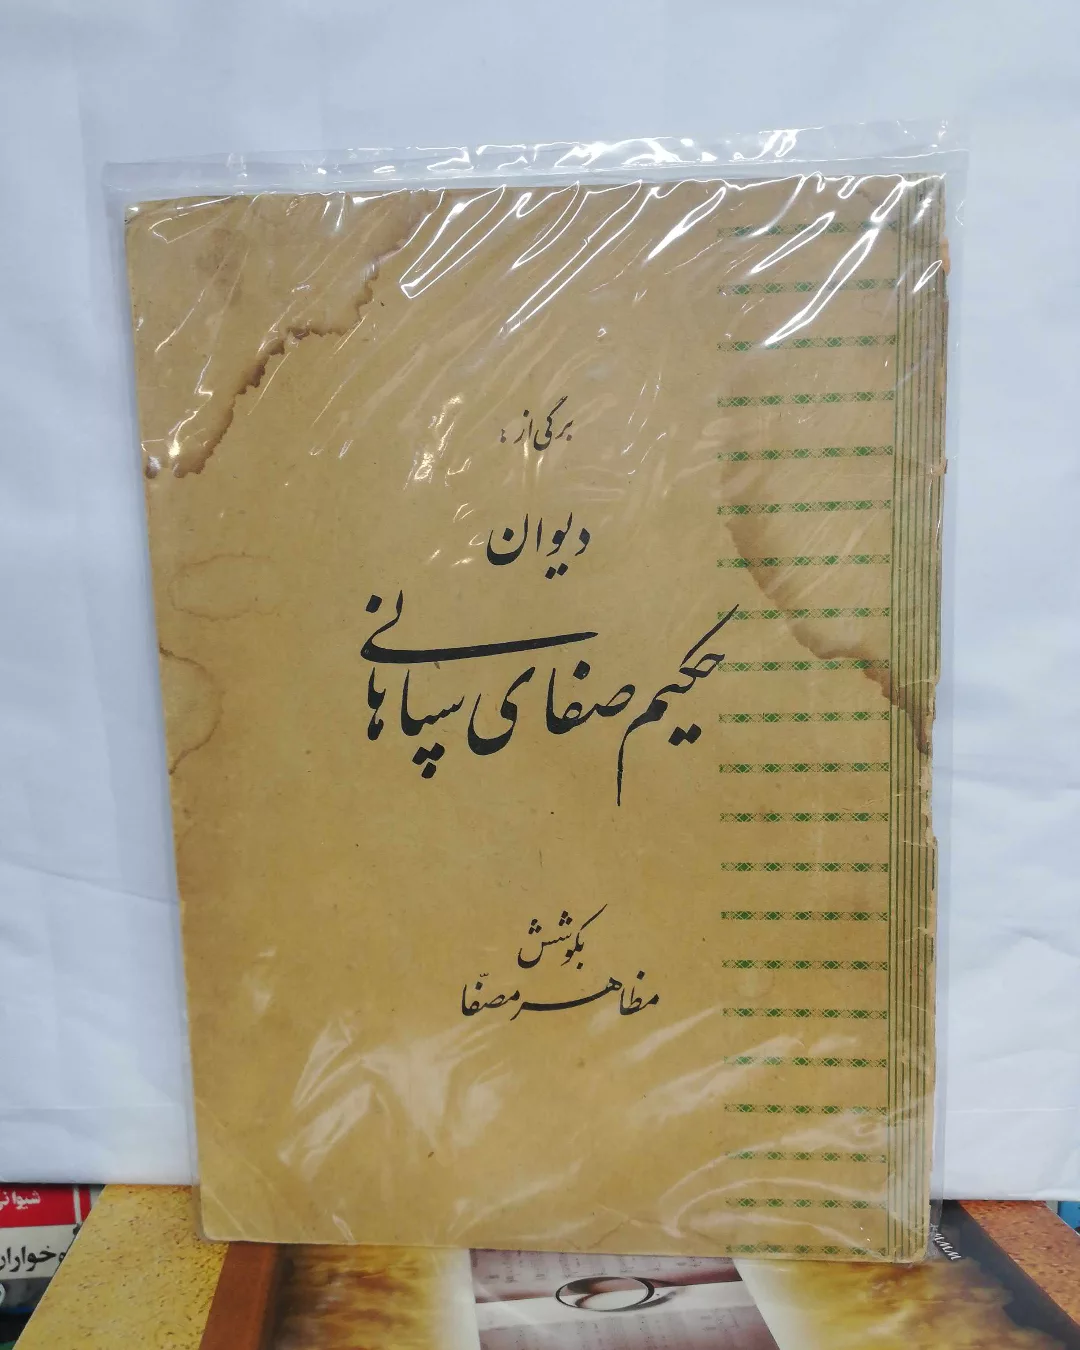 برگی از :
دیوان
حکیم صفای سپاهانی
بکوشش
مظاهر مصفّا
شیوانی
خواران
www